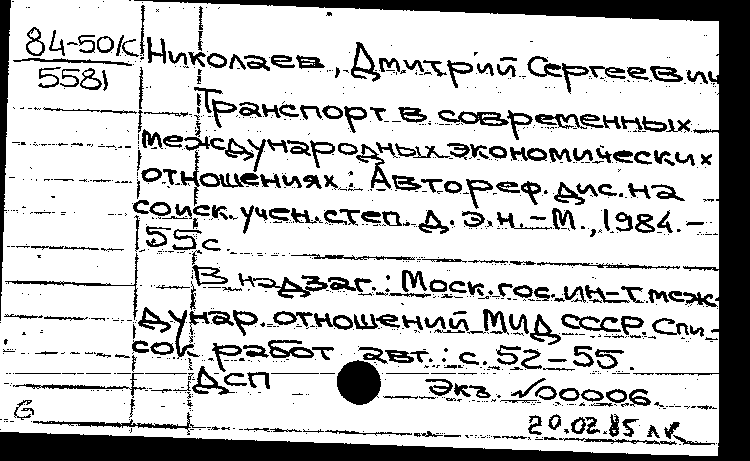 84-50/К
5581
Николаев, Дмитрий Сергеевич
Транспорт в современных
международных экономических
отношениях: Автореф. дис. на
соиск. учен. степ. д. э. н. – М., 1984. –
55 с.
В надзаг.: Моск. гос. ин-т меж-
дунар. отношений МИД СССР. Спи-
сок работ авт.: с. 52–55.
ДСП
экз. №00006.
6
20.02.85 лк